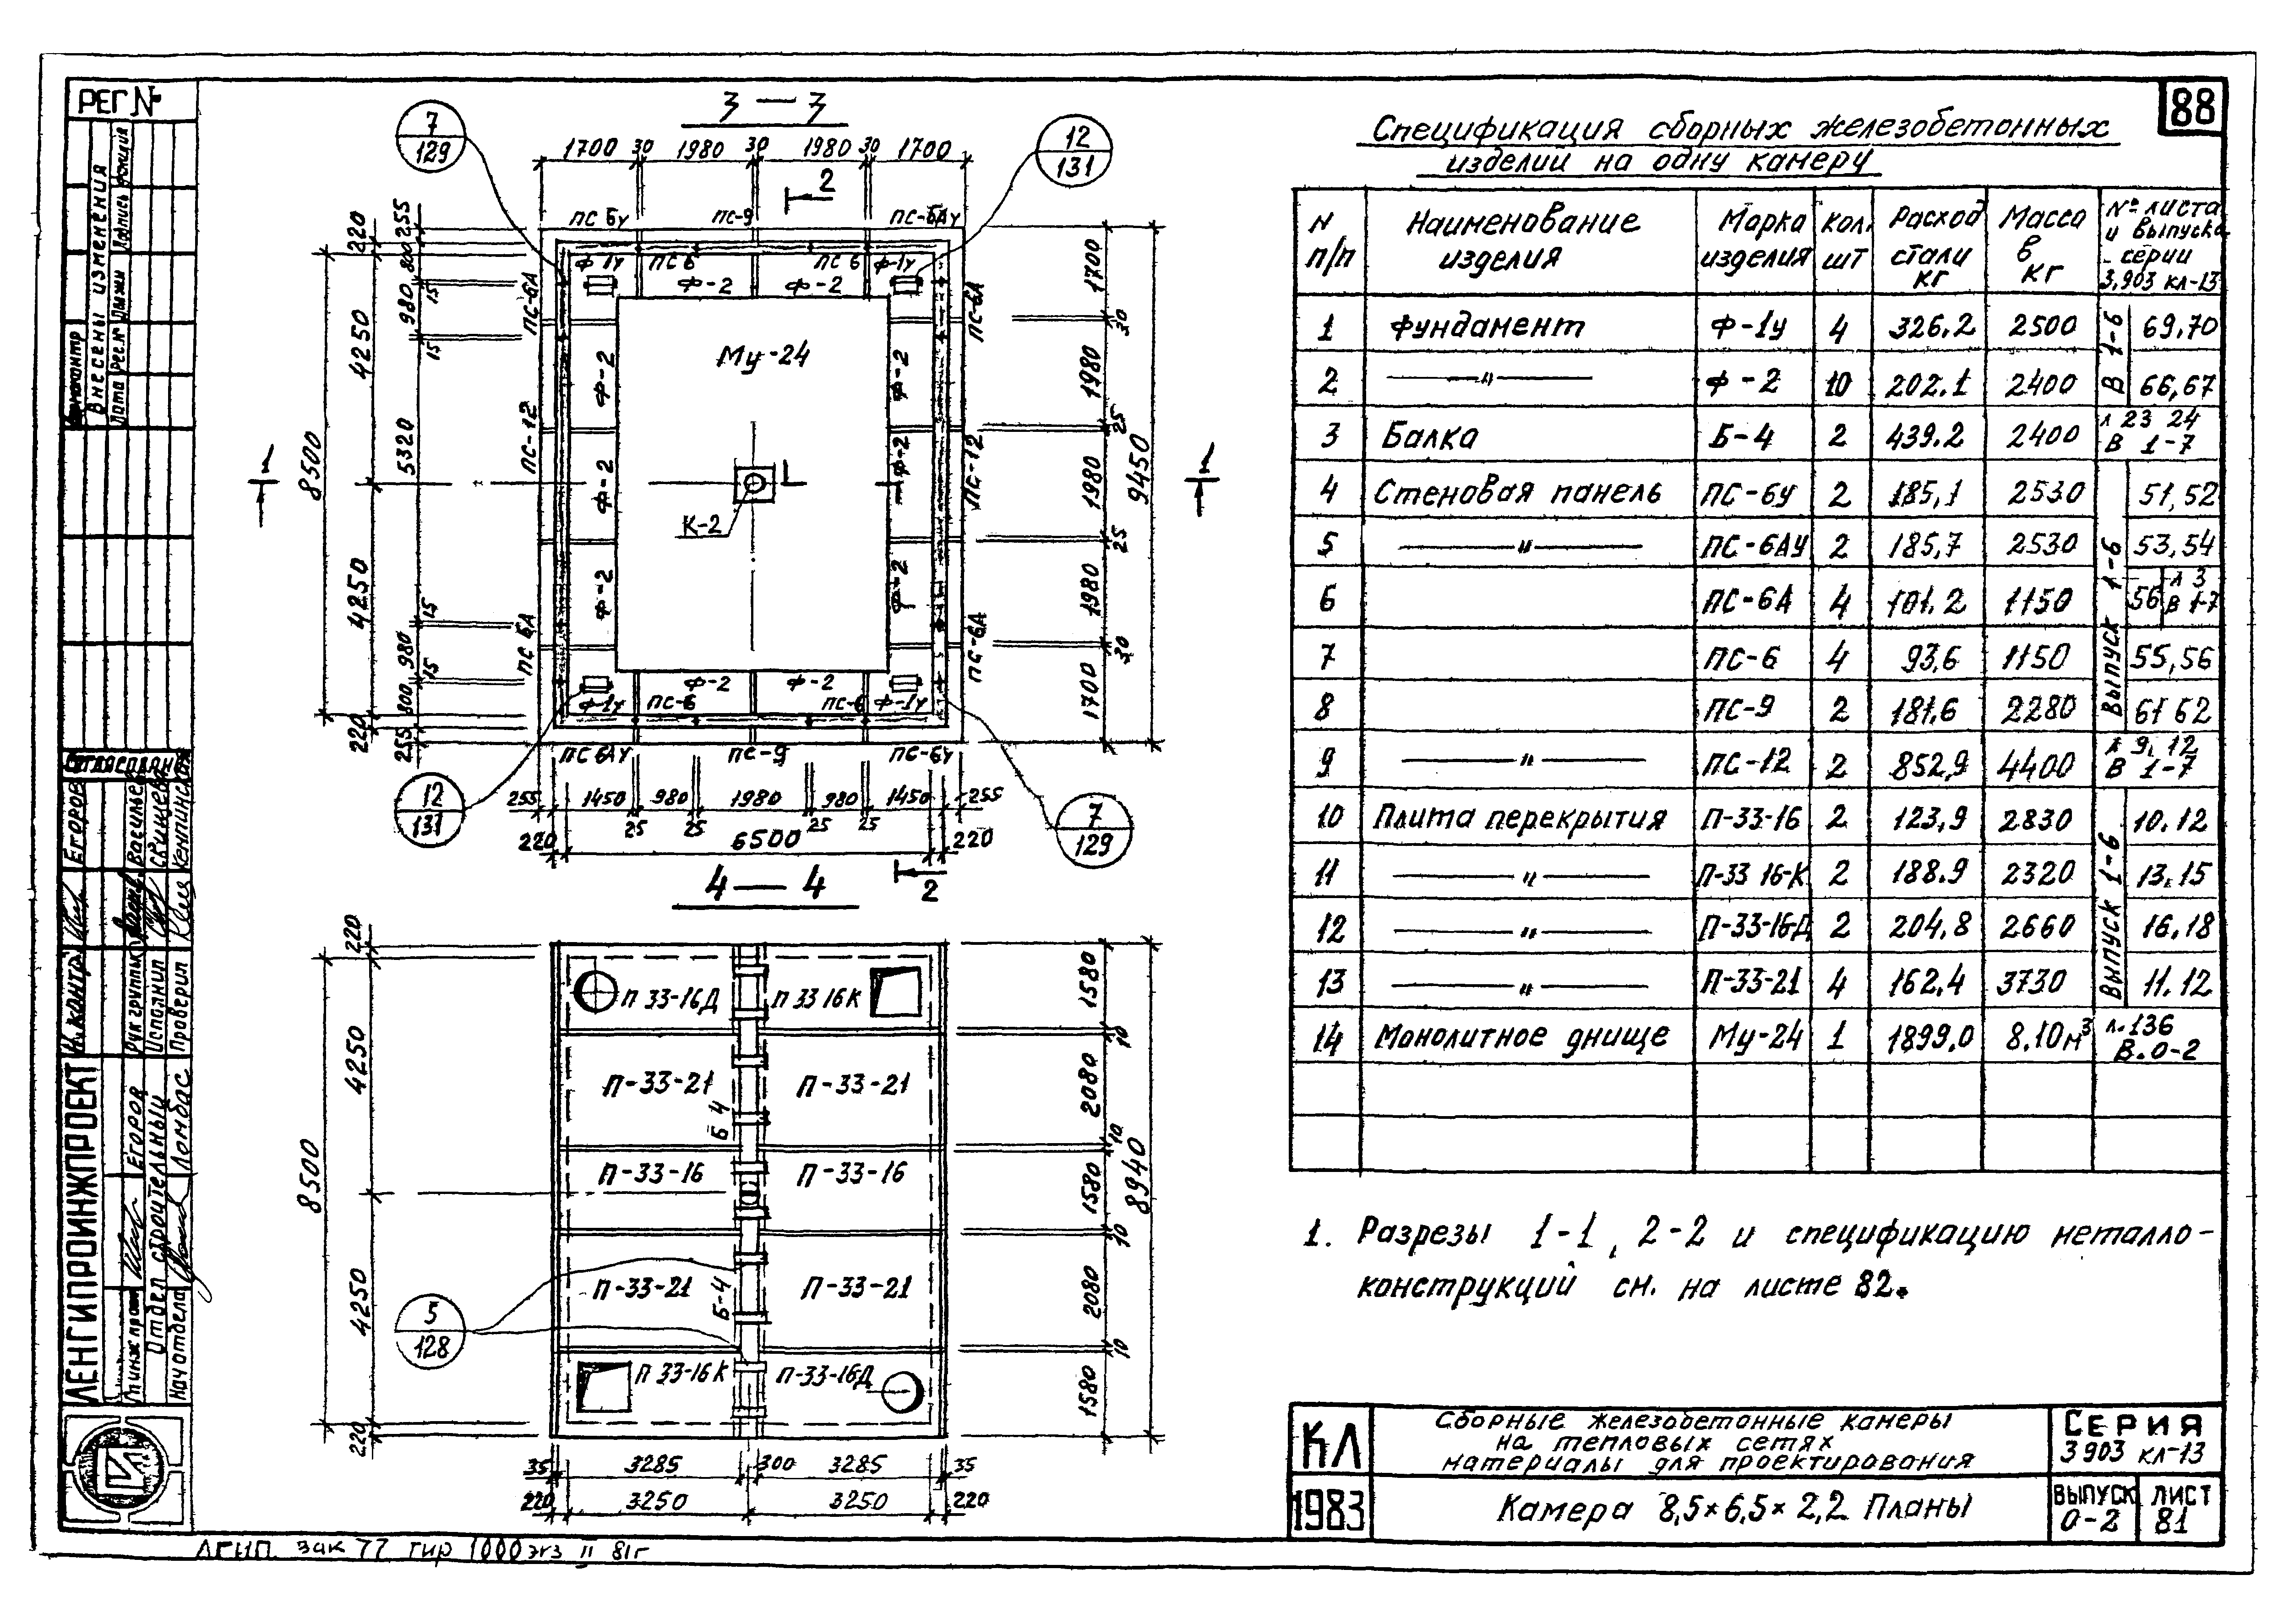 РЕГ №
88
3 — 3
7
129
12
131
1700 30 1980 30 1980 30 1700
2
ПС 6у ПС-9 ПС-6Ау
220 255
800
980
15
15
4250
8500
5320
4250
15
980
15
800
220
255
Ф-1у ПС 6 ПС 6 Ф-1у
Ф-2 Ф-2
ПС-6А
ПС-12
ПС 6А
Ф-2
Ф-2
Ф-2
Му-24
К-2
Ф-2
Ф-2
Ф-2
ПС-6А
ПС-12
ПС-6А
1700
30
1980
25
1980
25
1980
30
1700
9450
1
1
Ф-2 Ф-2
Ф-1у ПС-6 ПС-6 Ф-1у
ПС 6АУ ПС-9 ПС-6у
12
131
7
129
255 1450 980 1980 980 1450 255
25 25 25 25
220 6500 220
2
4 — 4
220
4250
8500
4250
220
П 33-16Д П 33 16К
П-33-21 П-33-21
Б 4
П-33-16 П-33-16
П-33-21 П-33-21
Б-4
П 33-16К П-33-16Д
5
128
1580
10
2080
10
1580
10
2080
10
1580
8940
35 3285 300 3285 35
220 3250 3250 220
Спецификация сборных железобетонных
изделий на одну камеру
N п/п | Наименование изделия | Марка изделия | Кол. шт | Расход стали кг | Масса в кг | № листа и выпуска серии 3.903 кл-13
1 Фундамент Ф-1у 4 326.2 2500 В 1-6 69,70
2 —"— Ф-2 10 202.1 2400 66,67
3 Балка Б-4 2 439.2 2400 л 23 24 В 1-7
4 Стеновая панель ПС-6у 2 185,1 2530 Выпуск 1-6 51,52
5 —"— ПС-6АУ 2 185,7 2530 53,54
6 ПС-6А 4 101.2 1150 56 л 3 В 1-7
7 ПС-6 4 93,6 1150 55,56
8 ПС-9 2 181.6 2280 61 62
9 —"— ПС-12 2 852,9 4400 л 9, 12 В 1-7
10 Плита перекрытия П-33-16 2 123,9 2830 Выпуск 1-6 10.12
11 —"— П-33 16-К 2 188.9 2320 13.15
12 —"— П-33-16Д 2 204,8 2660 16,18
13 —"— П-33-21 4 162,4 3730 11.12
14 Монолитное днище Му-24 1 1899.0 8.10м³ л.136 В.0-2
1. Разрезы 1-1, 2-2 и спецификацию металло-
конструкций см. на листе 82.
КЛ
1983
Сборные железобетонные камеры
на тепловых сетях
материалы для проектирования
Камера 8,5×6,5×2,2. Планы
СЕРИЯ
3 903 кл-13
ВЫПУСК
0-2
ЛИСТ
81
Внесены изменения
Дата
Рег.№
Подпись
Согласовано
Н.контр. Егоров
Рук группы Васильев
Исполнил
Проверил
ЛЕНГИПРОИНЖПРОЕКТ
Егоров
Отдел строительный
Нач отдела Ломбас
зак 77 тир 1000 экз II 81г